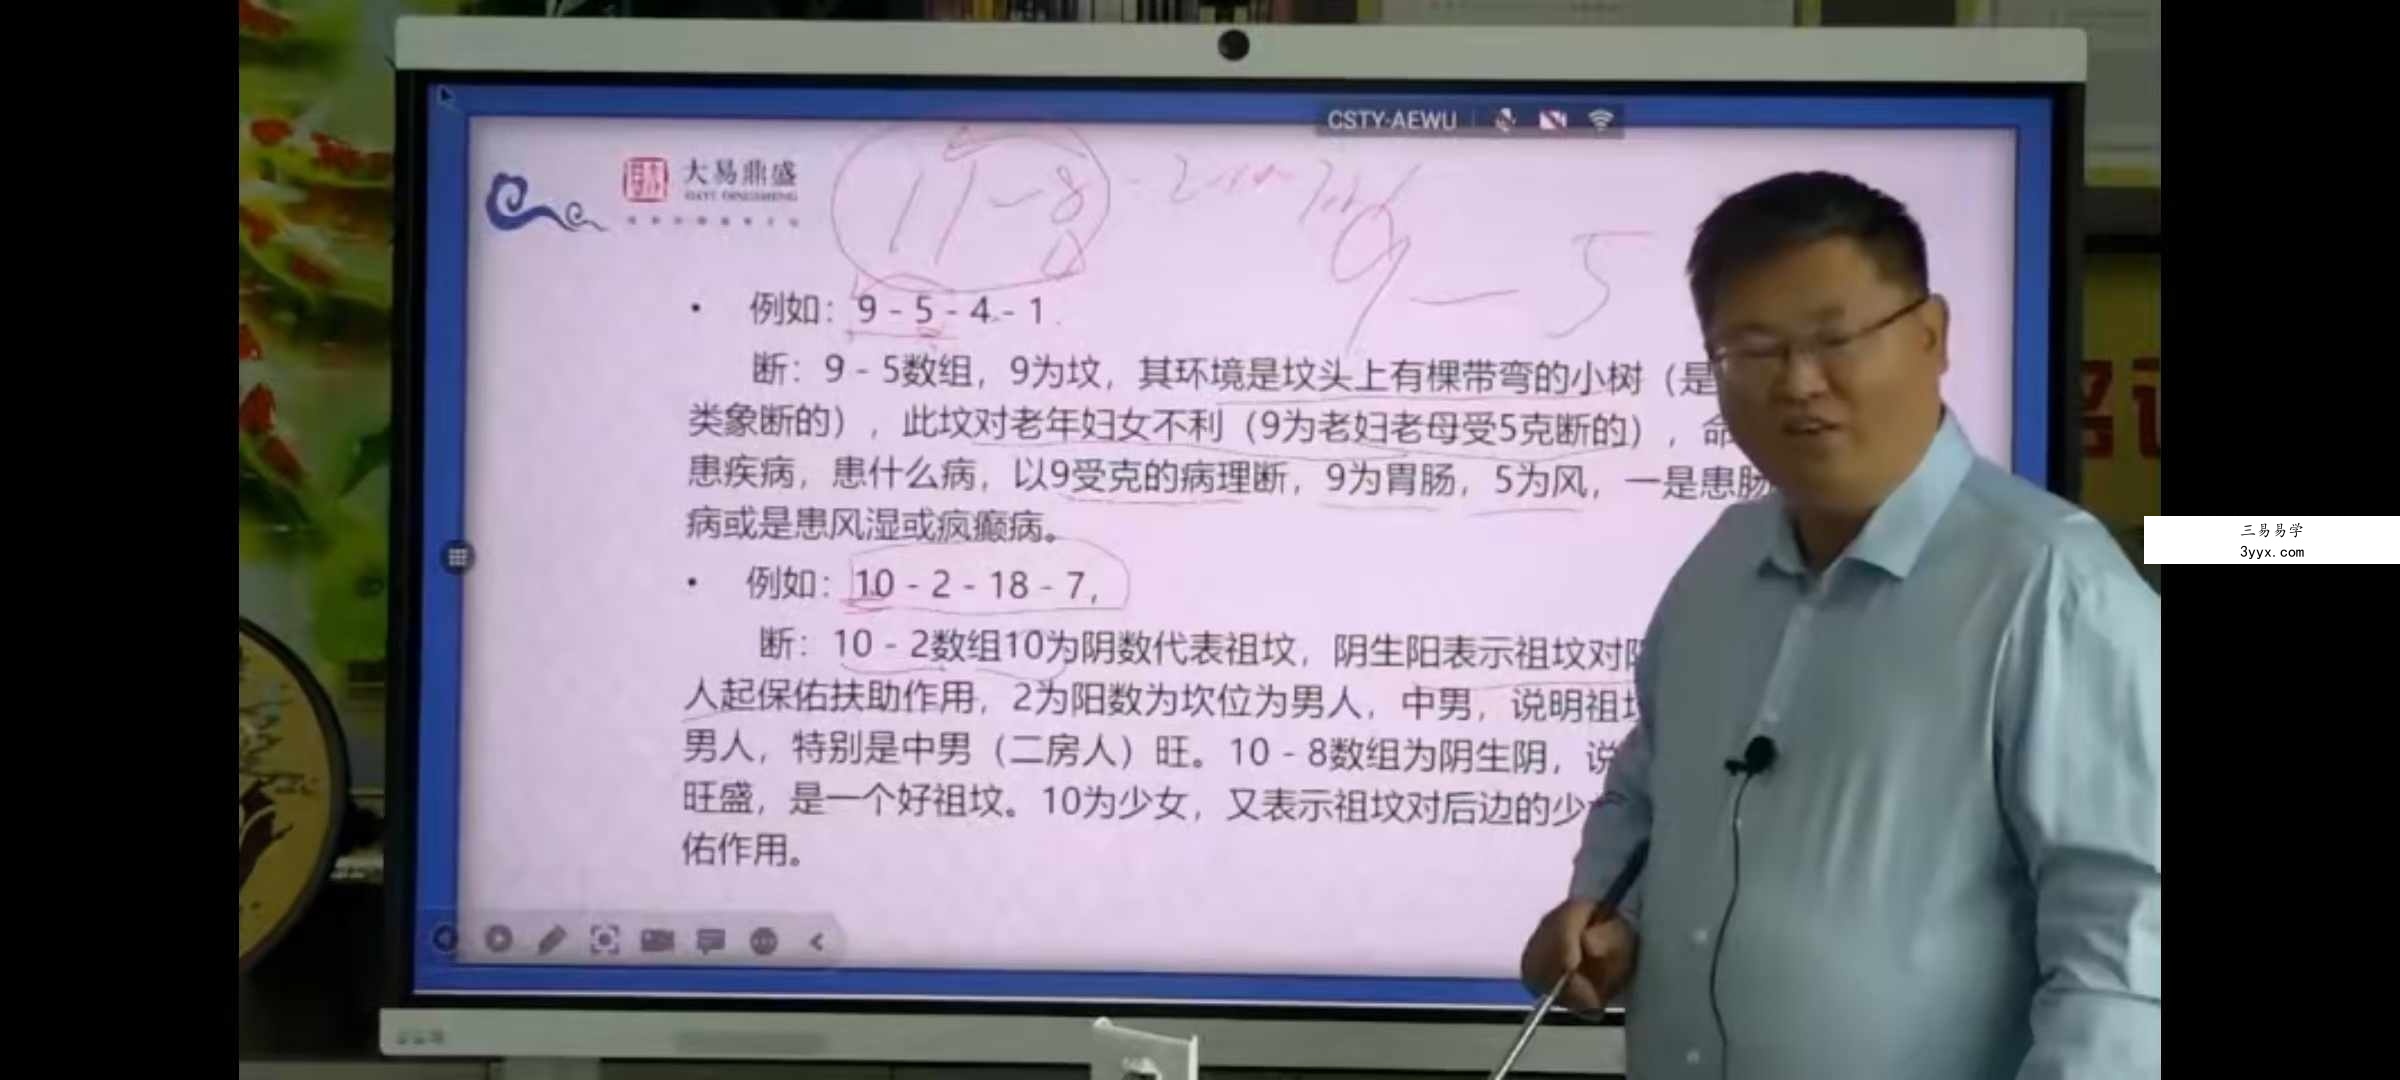 CSTY-AEWU
大易鼎盛
DAYI DINGSHENG
11-8
9-5
• 例如：9 - 5 - 4 - 1
断：9 - 5数组，9为坟，其环境是坟头上有棵带弯的小树（是
类象断的），此坟对老年妇女不利（9为老妇老母受5克断的），命
患疾病，患什么病，以9受克的病理断，9为胃肠，5为风，一是患肠
病或是患风湿或疯癫病。
• 例如：10 - 2 - 18 - 7，
断：10 - 2数组10为阴数代表祖坟，阴生阳表示祖坟对阳
人起保佑扶助作用，2为阳数为坎位为男人，中男，说明祖坟
男人，特别是中男（二房人）旺。10 - 8数组为阴生阴，说
旺盛，是一个好祖坟。10为少女，又表示祖坟对后边的少女
佑作用。
三易易学
3yyx.com